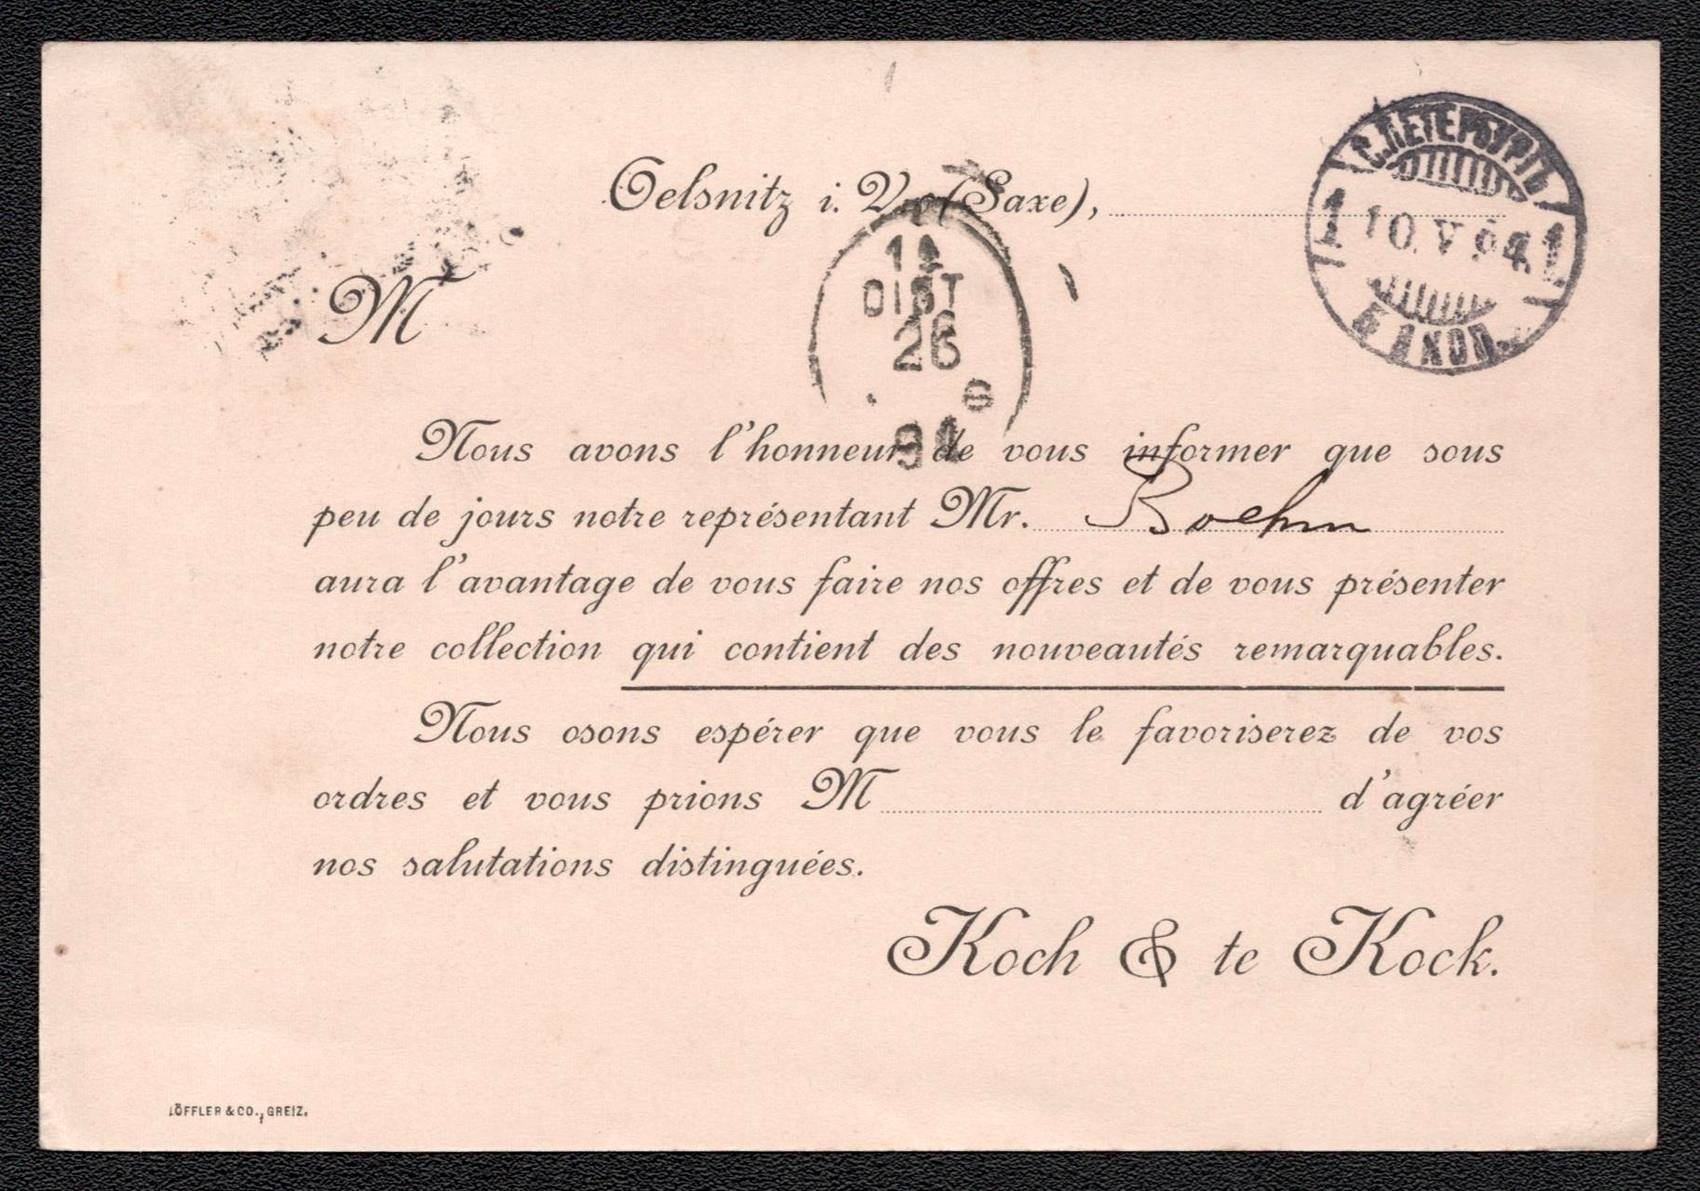 Oelsnitz i. V. (Saxe),
С.ПЕТЕРБУРГЪ
1 10.V 94. 1
ЭКСП.
11
DIST
26
6
94
M
Nous avons l'honneur de vous informer que sous
peu de jours notre représentant Mr. Boehm
aura l'avantage de vous faire nos offres et de vous présenter
notre collection qui contient des nouveautés remarquables.
Nous osons espérer que vous le favoriserez de vos
ordres et vous prions M d'agréer
nos salutations distinguées.
Koch & te Kock.
LÖFFLER & CO., GREIZ.